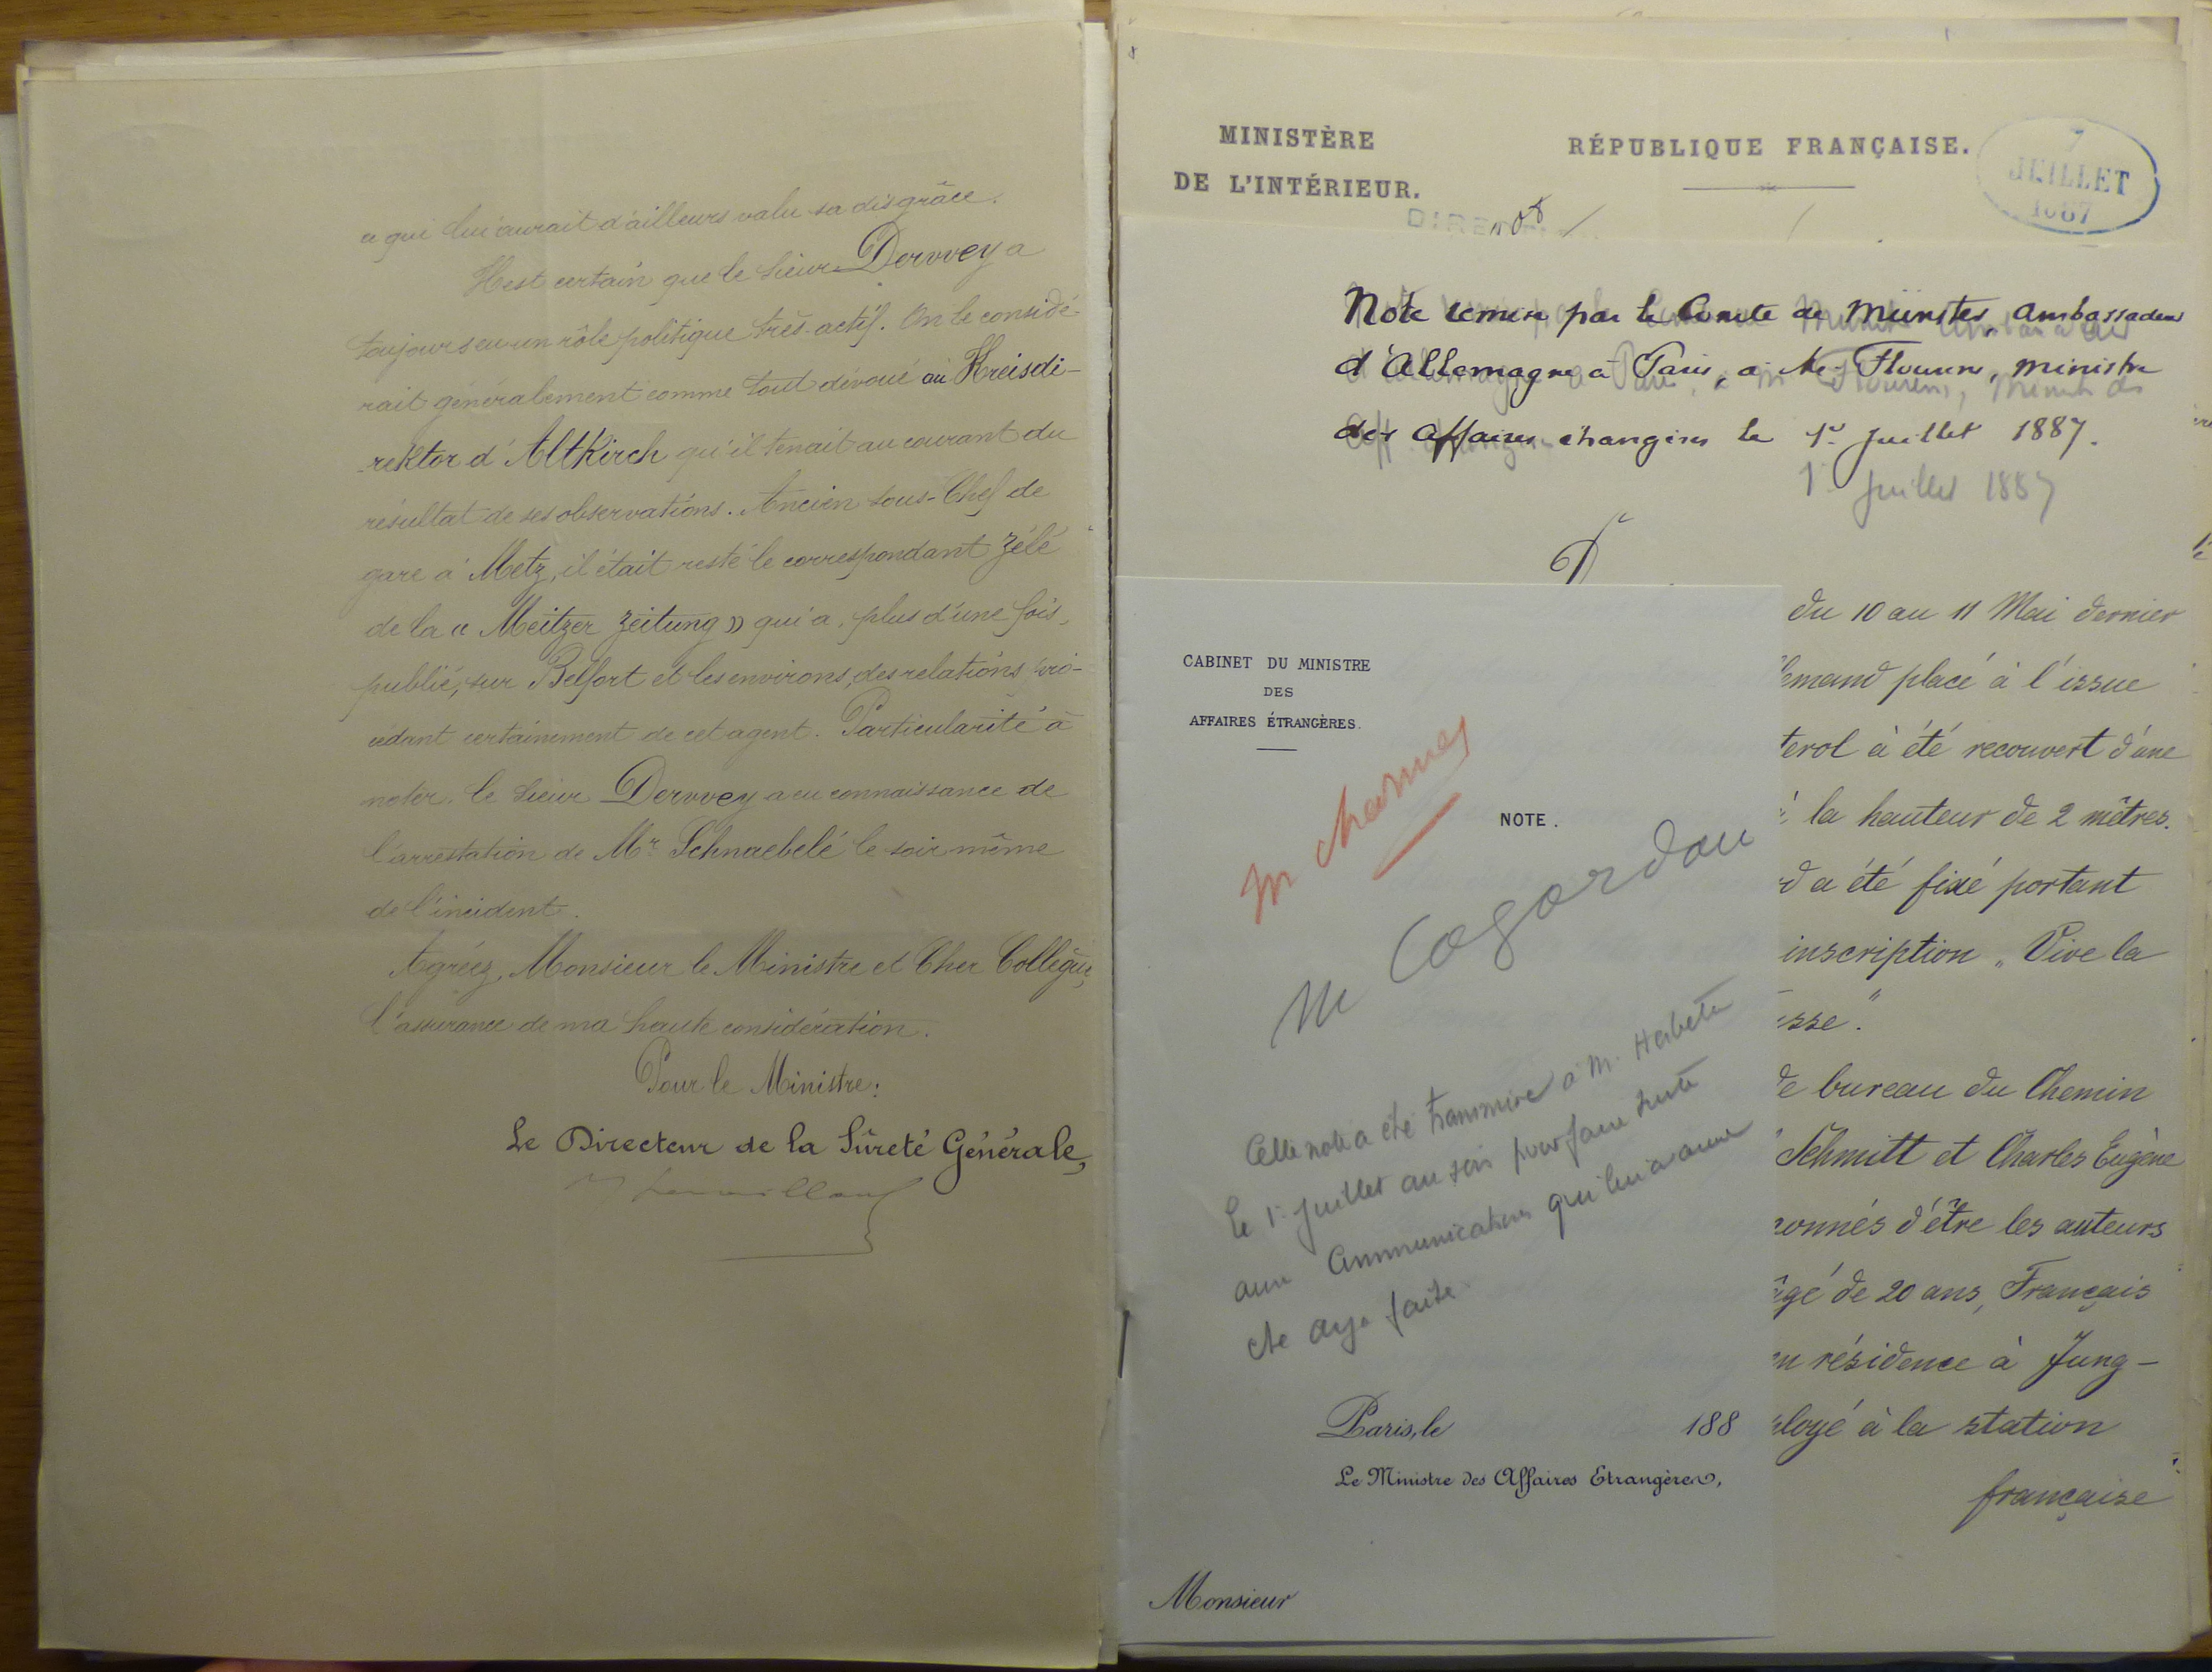 a qui lui aurait d'ailleurs valu sa disgrâce.
Il est certain que le sieur Dervvey a
toujours eu un rôle politique très actif. On le considé-
rait généralement comme tout dévoué au Kreisdi-
rektor d'Altkirch qu'il tenait au courant du
résultat de ses observations. Ancien sous-Chef de
gare à Metz, il était resté le correspondant zélé
de la « Meitzer Zeitung » qui a, plus d'une fois,
publié, sur Belfort et les environs, des relations pro-
cédant certainement de cet agent. Particularité à
noter, le sieur Dervvey a eu connaissance de
l'arrestation de Mr Schnaebelé le soir même
de l'incident.
Agréez, Monsieur le Ministre et Cher Collègue,
l'assurance de ma haute considération.
Pour le Ministre:
Le Directeur de la Sûreté Générale,
MINISTÈRE
DE L'INTÉRIEUR.
RÉPUBLIQUE FRANÇAISE.
7
JUILLET
1887
Note remise par le Comte de Münster, ambassadeur
d'Allemagne à Paris, à M. Flourens, ministre
des affaires étrangères le 1er Juillet 1887.
1er Juillet 1887
CABINET DU MINISTRE
DES
AFFAIRES ÉTRANGÈRES.
NOTE.
M Charmes
M Cogordan
Cette note a été transmise à M. Herbette
le 1er Juillet au soir pour faire suite
aux Communications qui lui avaient
été déjà faites
Paris, le 188
Le Ministre des Affaires Etrangères,
Monsieur
du 10 au 11 Mai dernier
lemand placé à l'issue
terol à été recouvert d'une
la hauteur de 2 mètres.
d a été fixé portant
inscription „Vive la
sse."
de bureau du Chemin
Schmitt et Charles Eugène
onnés d'être les auteurs
âgé de 20 ans, Français
en résidence à Jung-
ployé à la station
française